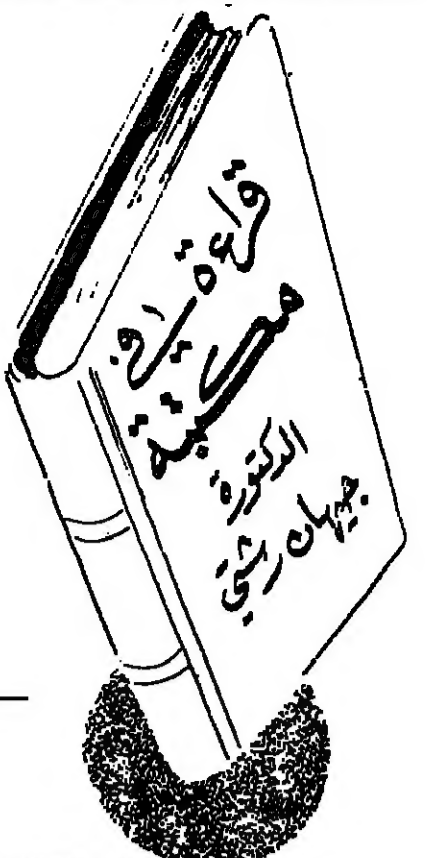 قراءة في
مكتبة
الدكتورة
جيهان رشتي